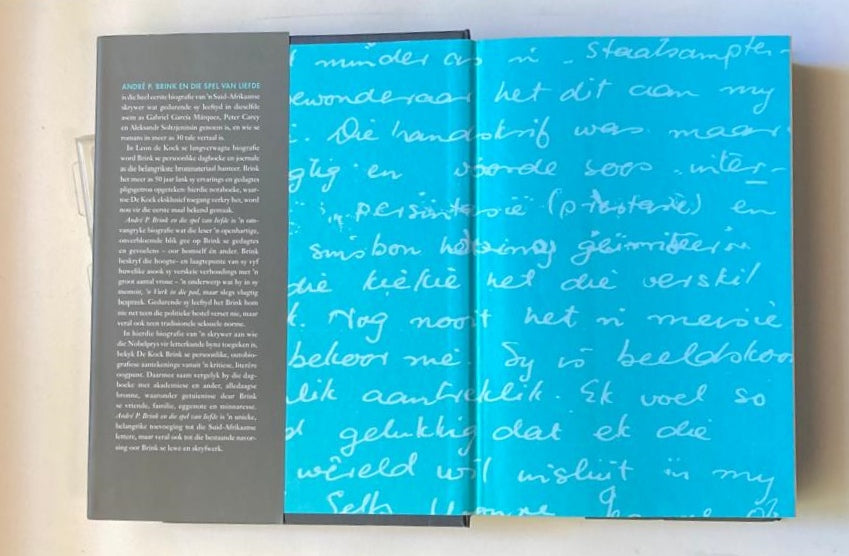 ANDRÉ P. BRINK EN DIE SPEL VAN LIEFDE
is die heel eerste biografie van 'n Suid-Afrikaanse
skrywer wat gedurende sy leeftyd in dieselfde
asem as Gabriel García Márquez, Peter Carey
en Aleksandr Solzjenitsin genoem is, en wie se
romans in meer as 30 tale vertaal is.
In Leon de Kock se langverwagte biografie
word Brink se persoonlike dagboeke en joernale
as die belangrikste bronmateriaal hanteer. Brink
het meer as 50 jaar lank sy ervarings en gedagtes
pligsgetrou opgeteken: hierdie notaboeke, waar-
toe De Kock eksklusief toegang verkry het, word
nou vir die eerste maal bekend gemaak.
André P. Brink en die spel van liefde is 'n om-
vangryke biografie wat die leser 'n openhartige,
onverbloemde blik gee op Brink se gedagtes
en gevoelens – oor homself én ander. Brink
beskryf die hoogte- en laagtepunte van sy vyf
huwelike asook sy verskeie verhoudings met 'n
groot aantal vroue – 'n onderwerp wat hy in sy
memoir, 'n Vurk in die pad, maar slegs vlugtig
bespreek. Gedurende sy leeftyd het Brink hom
nie net teen die politieke bestel verset nie, maar
veral ook teen tradisionele seksuele norme.
In hierdie biografie van 'n skrywer aan wie
die Nobelprys vir letterkunde byna toegeken is,
bekyk De Kock Brink se persoonlike, outobio-
grafiese aantekeninge vanuit 'n kritiese, literêre
oogpunt. Daarmee saam vergelyk hy die dag-
boeke met akademiese en ander, alledaagse
bronne, waaronder getuienisse deur Brink
se vriende, familie, eggenote en minnaresse.
André P. Brink en die spel van liefde is 'n unieke,
belangrike toevoeging tot die Suid-Afrikaanse
lettere, maar veral ook tot die bestaande navor-
sing oor Brink se lewe en skryfwerk.
minder as 'n Staatsampte-
ewonderaar het dit aan my
Die handskrif was maar
gtig en woorde soos inter-
persintasie (prostasie) en
het die verskil
Nog nooit het 'n meisie
bekoor nie. Sy is beeldskoo
lik aantreklik. Ek voel so
gelukkig dat ek die
wêreld wil insluit in my